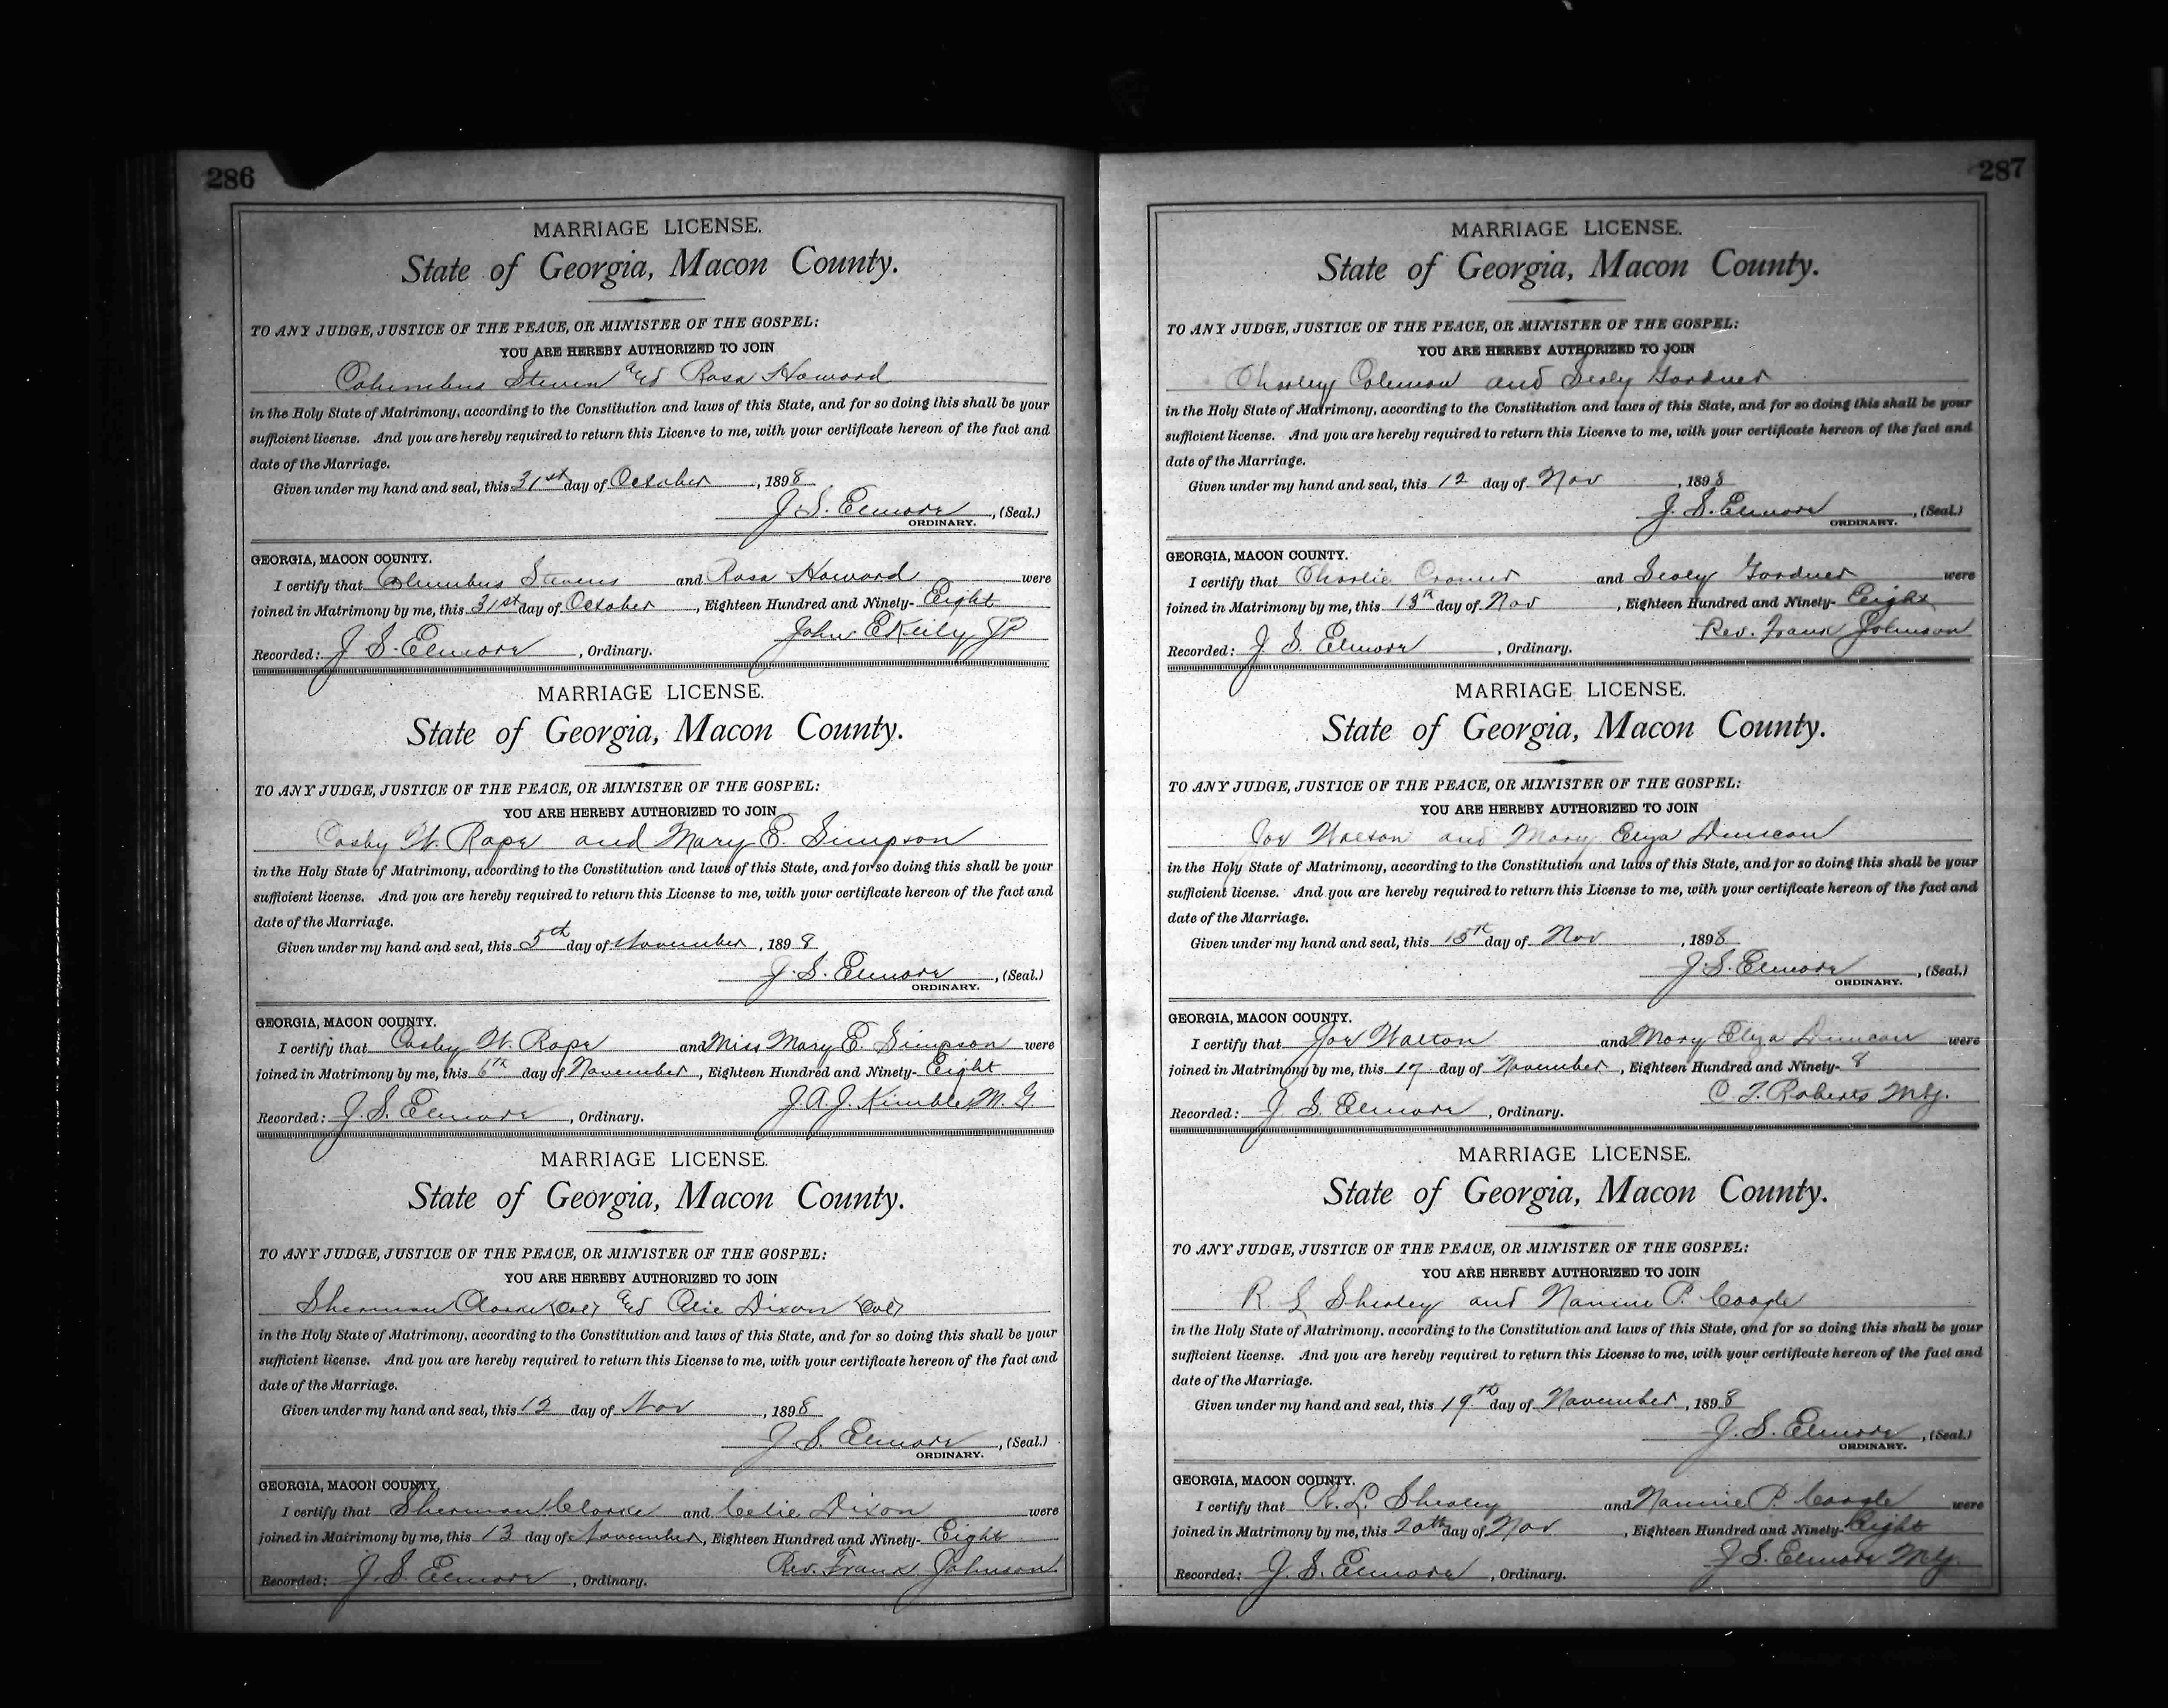 286
MARRIAGE LICENSE.
State of Georgia, Macon County.
TO ANY JUDGE, JUSTICE OF THE PEACE, OR MINISTER OF THE GOSPEL:
YOU ARE HEREBY AUTHORIZED TO JOIN
Columbus Steven and Rosa Howard
in the Holy State of Matrimony, according to the Constitution and laws of this State, and for so doing this shall be your
sufficient license. And you are hereby required to return this License to me, with your certificate hereon of the fact and
date of the Marriage.
Given under my hand and seal, this 31st day of October, 1898
J. S. Elmore, (Seal.)
ORDINARY.
GEORGIA, MACON COUNTY.
I certify that Columbus Stevens and Rosa Howard were
joined in Matrimony by me, this 31st day of October, Eighteen Hundred and Ninety- Eight
John E Keily JP
Recorded: J S. Elmore, Ordinary.
MARRIAGE LICENSE.
State of Georgia, Macon County.
TO ANY JUDGE, JUSTICE OF THE PEACE, OR MINISTER OF THE GOSPEL:
YOU ARE HEREBY AUTHORIZED TO JOIN
Cosby W. Rape and Mary E. Simpson
in the Holy State of Matrimony, according to the Constitution and laws of this State, and for so doing this shall be your
sufficient license. And you are hereby required to return this License to me, with your certificate hereon of the fact and
date of the Marriage.
Given under my hand and seal, this 5th day of November, 1898
J. S. Elmore, (Seal.)
ORDINARY.
GEORGIA, MACON COUNTY.
I certify that Cosby W. Rape and Miss Mary E. Simpson were
joined in Matrimony by me, this 6th day of November, Eighteen Hundred and Ninety- Eight
J. A. J. Kimble, M. G
Recorded: J. S. Elmore, Ordinary.
MARRIAGE LICENSE.
State of Georgia, Macon County.
TO ANY JUDGE, JUSTICE OF THE PEACE, OR MINISTER OF THE GOSPEL:
YOU ARE HEREBY AUTHORIZED TO JOIN
Sherman Clarke (Col) and Celie Dixon (Col)
in the Holy State of Matrimony, according to the Constitution and laws of this State, and for so doing this shall be your
sufficient license. And you are hereby required to return this License to me, with your certificate hereon of the fact and
date of the Marriage.
Given under my hand and seal, this 12 day of Nov, 1898
J. S. Elmore, (Seal.)
ORDINARY.
GEORGIA, MACON COUNTY.
I certify that Sherman Clarke and Celie Dixon were
joined in Matrimony by me, this 13 day of November, Eighteen Hundred and Ninety- Eight
Rev. Frank Johnson
Recorded: J. S. Elmore, Ordinary.
287
MARRIAGE LICENSE.
State of Georgia, Macon County.
TO ANY JUDGE, JUSTICE OF THE PEACE, OR MINISTER OF THE GOSPEL:
YOU ARE HEREBY AUTHORIZED TO JOIN
Charley Coleman and Gardner
in the Holy State of Matrimony, according to the Constitution and laws of this State, and for so doing this shall be your
sufficient license. And you are hereby required to return this License to me, with your certificate hereon of the fact and
date of the Marriage.
Given under my hand and seal, this 12 day of Nov, 1898
J. S. Elmore, (Seal.)
ORDINARY.
GEORGIA, MACON COUNTY.
I certify that Charlie and Gardner were
joined in Matrimony by me, this 13th day of Nov, Eighteen Hundred and Ninety- Eight
Rev. Frank Johnson
Recorded: J. S. Elmore, Ordinary.
MARRIAGE LICENSE.
State of Georgia, Macon County.
TO ANY JUDGE, JUSTICE OF THE PEACE, OR MINISTER OF THE GOSPEL:
YOU ARE HEREBY AUTHORIZED TO JOIN
Joe Walton and Mary Eliza Duncan
in the Holy State of Matrimony, according to the Constitution and laws of this State, and for so doing this shall be your
sufficient license. And you are hereby required to return this License to me, with your certificate hereon of the fact and
date of the Marriage.
Given under my hand and seal, this 15th day of Nov, 1898
J. S. Elmore, (Seal.)
ORDINARY.
GEORGIA, MACON COUNTY.
I certify that Joe Walton and Mary Eliza Duncan were
joined in Matrimony by me, this 17 day of November, Eighteen Hundred and Ninety- 8
C. T. Roberts M.G.
Recorded: J. S. Elmore, Ordinary.
MARRIAGE LICENSE.
State of Georgia, Macon County.
TO ANY JUDGE, JUSTICE OF THE PEACE, OR MINISTER OF THE GOSPEL:
YOU ARE HEREBY AUTHORIZED TO JOIN
R. L Shealey and Nannie P. Coogle
in the Holy State of Matrimony, according to the Constitution and laws of this State, and for so doing this shall be your
sufficient license. And you are hereby required to return this License to me, with your certificate hereon of the fact and
date of the Marriage.
Given under my hand and seal, this 19th day of November, 1898
J. S. Elmore, (Seal.)
ORDINARY.
GEORGIA, MACON COUNTY.
I certify that R. L. Shealey and Nannie P. Coogle were
joined in Matrimony by me, this 20th day of Nov, Eighteen Hundred and Ninety- Eight
J S. Elmore M.G.
Recorded: J. S. Elmore, Ordinary.